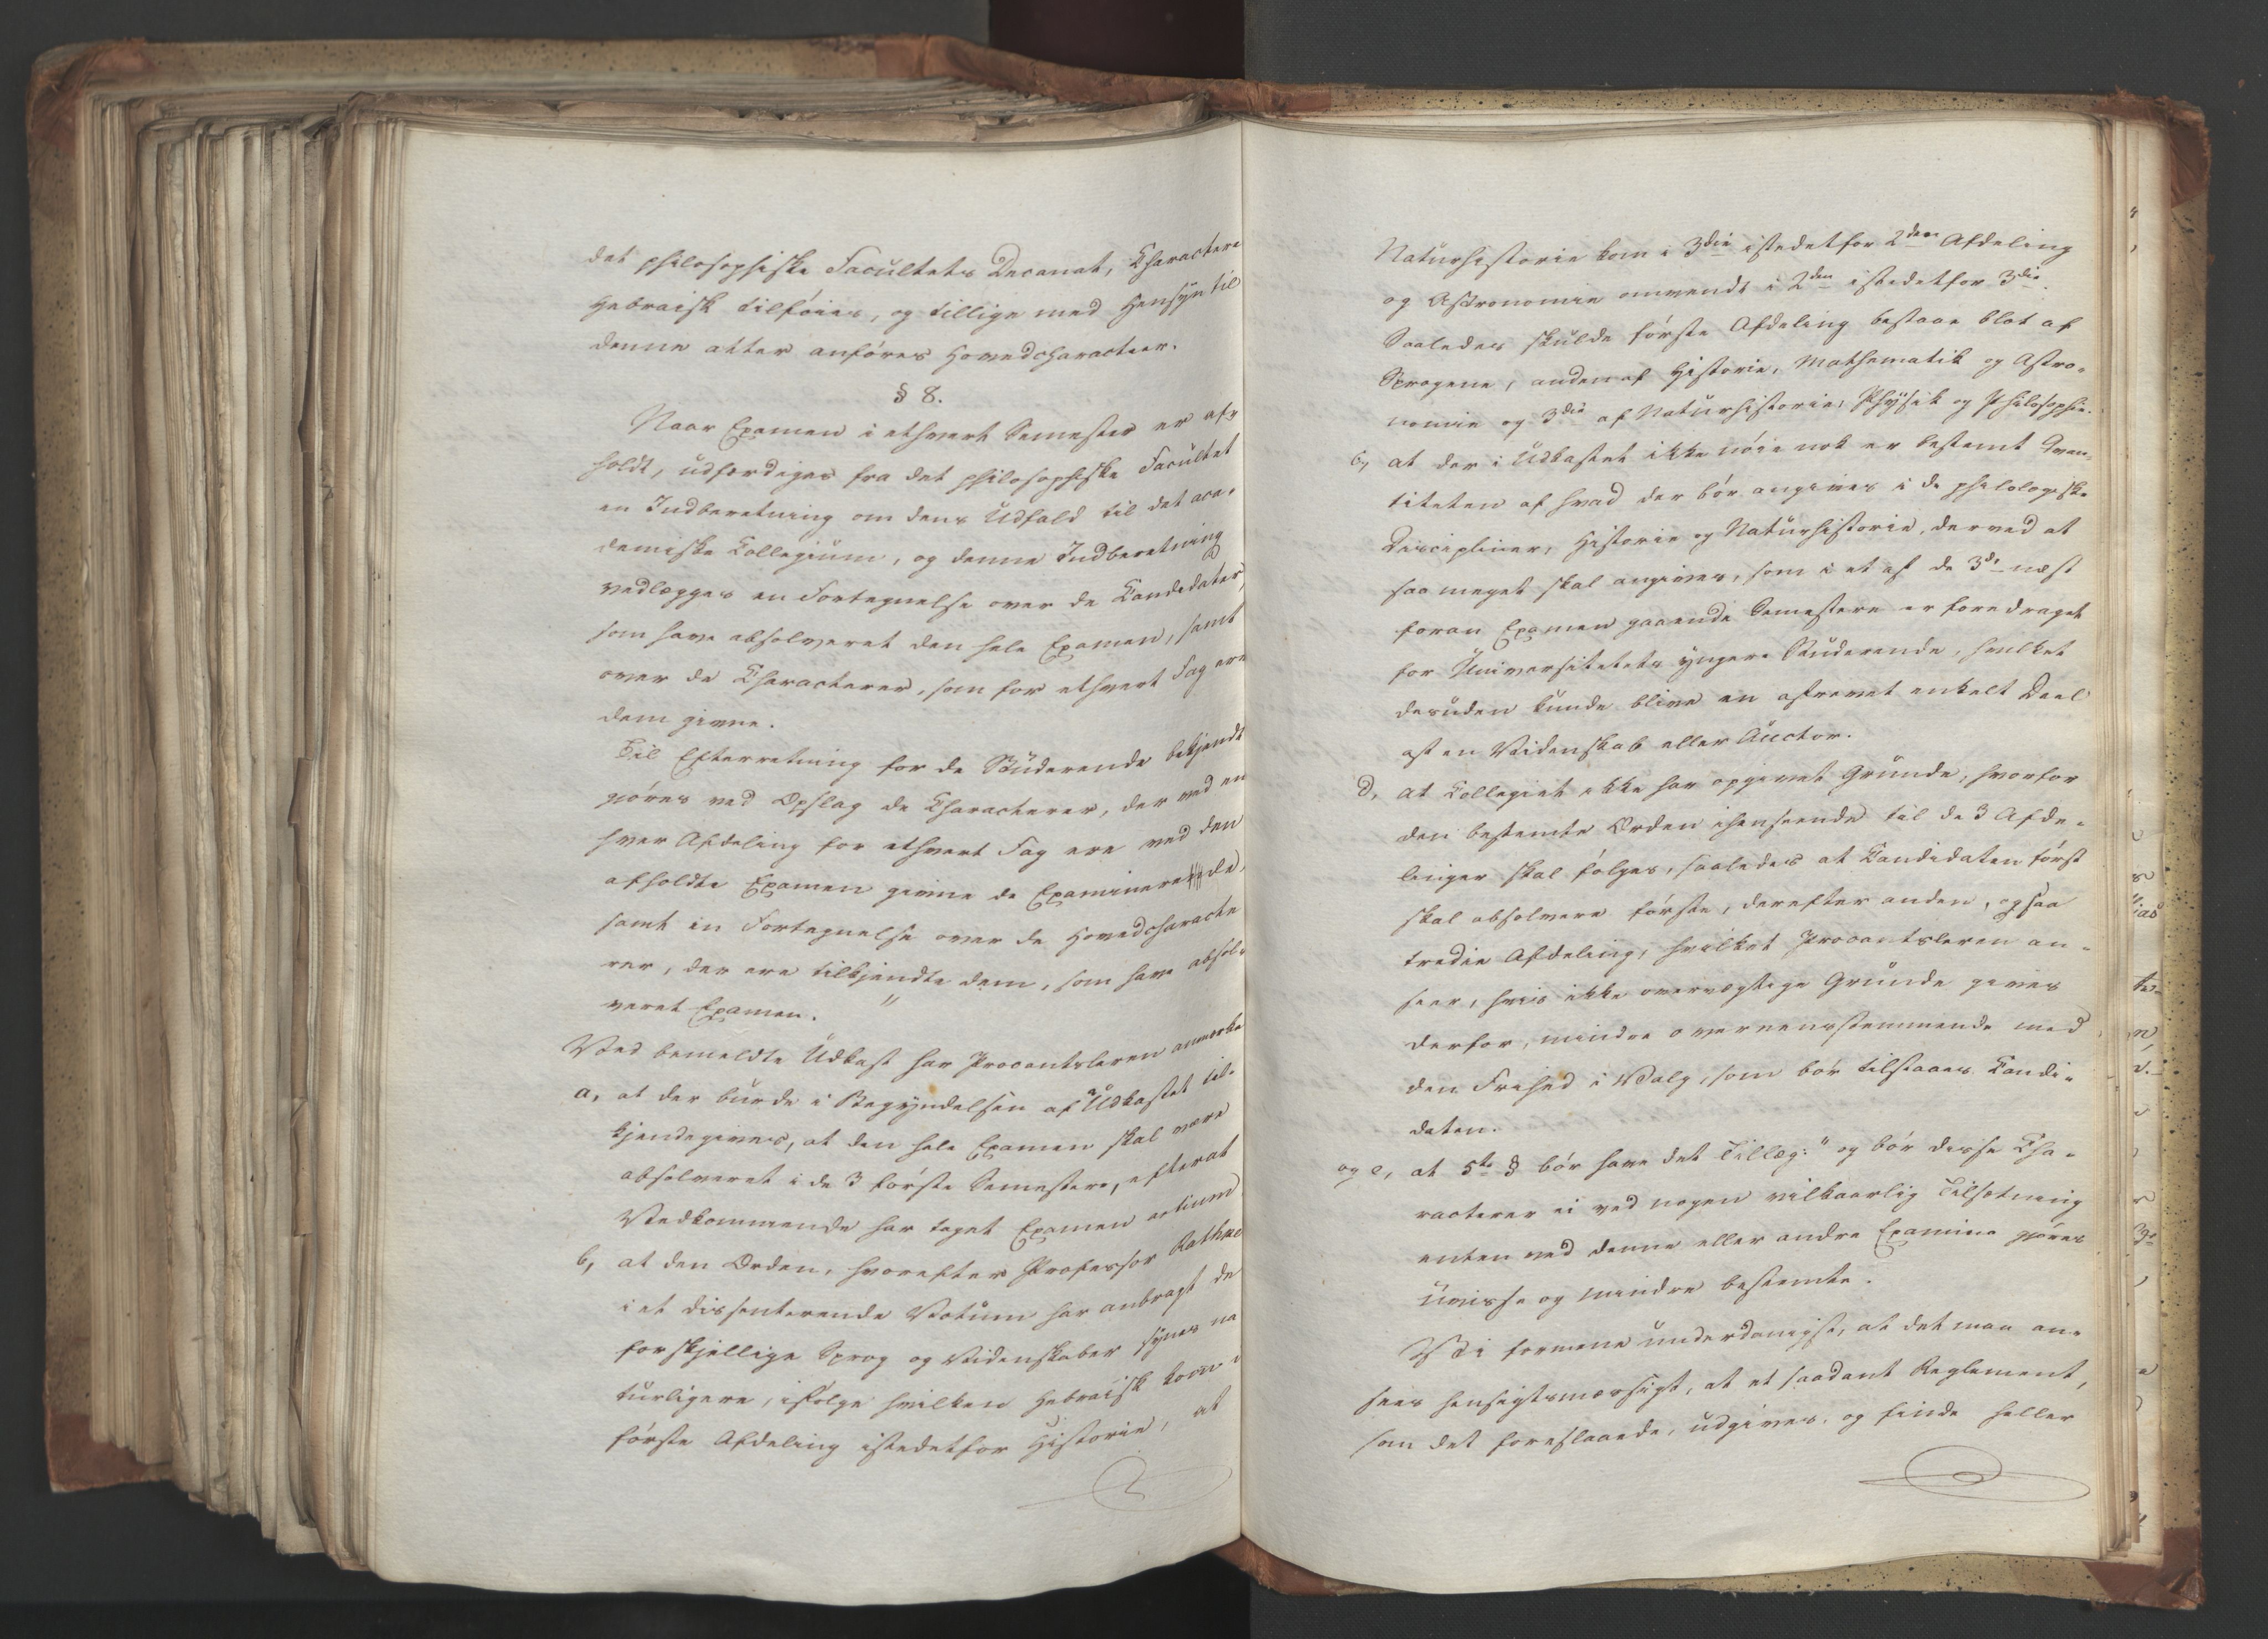 det philosophiske Facultets Decanat, Charactere
Hebraisk tilföies, og tillige med Hensÿn til
denne atter anföres Hovedcharacteer.
§ 8.
Naar Examen i ethvert Semester er af-
holdt, udfærdiges fra det philosophiske Facultet
en Indberetning om dens Udfald til det aca-
demiske Collegium, og denne Indberetning
vedlægges en Fortegnelse over de Candidater,
som have absolveret den hele Examen, samt
over de Characterer, som for ethvert Fag ere
dem givne.
Til Efterretning for de Studerende bekjendt
gjöres ved Opslag de Characterer, der ved en
hver Afdeling for ethvert Fag ere ved den
afholdte Examen givne de Examinerede,
samt en Fortegnelse over de Hovedcharacte
rer, der ere tilkjendte dem, som have absol-
veret Examen. "
Ved bemeldte Udkast har Procantsleren anmerke
a, at der burde i Begyndelsen af Udkastet til-
kjendegives, at den hele Examen skal være
absolveret i de 3 förste Semestere, efterat
Vedkommende har taget Examen artium
b, at den Orden, hvorefter Professor Rathke
i et dissenterende Votum har anbragt de
forskjellige Sprog og Videnskaber synes na
turligere, ifölge hvilken Hebraisk kom i
förste Afdeling istedetfor Historie, at
Naturhistorie kom i 3die istedetfor 2den Afdeling
og Astronomie omvendt i 2den istedetfor 3die.
Saaledes skulde förste Afdeling bestaae blot af
Sprogene, anden af Historie, Mathematik og Astro-
nomie og 3die af Naturhistorie, Physik og Philosophie.
c, at der i Udkastet ikke nöie nok er bestemt Qvan-
titeten af hvad der bör angives i de philologiske
Discipliner, Historie og Naturhistorie, derved at
saa meget skal angives, som i et af de 3de næst
foran Examen gaaende Semestere er foredraget
for Universitetets yngere Studerende, hvilket
desuden kunde blive en afrevet enkelt Deel
af en Videnskab eller Auctor.
d, at Collegiet ikke har opgivet Grunde, hvorfor
den bestemte Orden ihenseende til de 3 Afde-
linger skal fölges, saaledes at Candidaten först
skal absolvere förste, derefter anden, og saa
tredie Afdeling, hvilket Procantsleren an-
seer, hvis ikke overvægtige Grunde gives
derfor, mindre overeensstemmende med
den Frihed i Valg, som bör tilstaaes Candi-
daten.
og e, at 5te § bör have det Tillæg: " og bör disse Cha-
racterer ei ved nogen vilkaarlig Tilsetning
enten ved denne eller andre Examina gjöres
uvisse og mindre bestemte.
Vi formene underdanigst, at det maa an-
sees hensigtsmæssigt, at et saadant Reglement,
som det foreslaaede, udgives, og finde heller